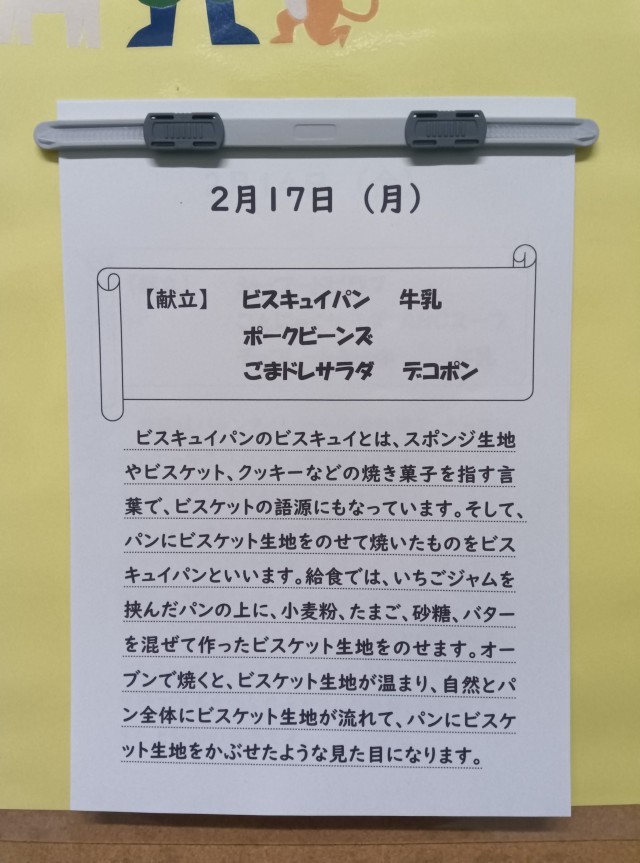 2月17日（月）
【献立】 ビスキュイパン 牛乳
ポークビーンズ
ごまドレサラダ デコポン
ビスキュイパンのビスキュイとは、スポンジ生地
やビスケット、クッキーなどの焼き菓子を指す言
葉で、ビスケットの語源にもなっています。そして、
パンにビスケット生地をのせて焼いたものをビス
キュイパンといいます。給食では、いちごジャムを
挟んだパンの上に、小麦粉、たまご、砂糖、バター
を混ぜて作ったビスケット生地をのせます。オー
ブンで焼くと、ビスケット生地が温まり、自然とパ
ン全体にビスケット生地が流れて、パンにビスケ
ット生地をかぶせたような見た目になります。